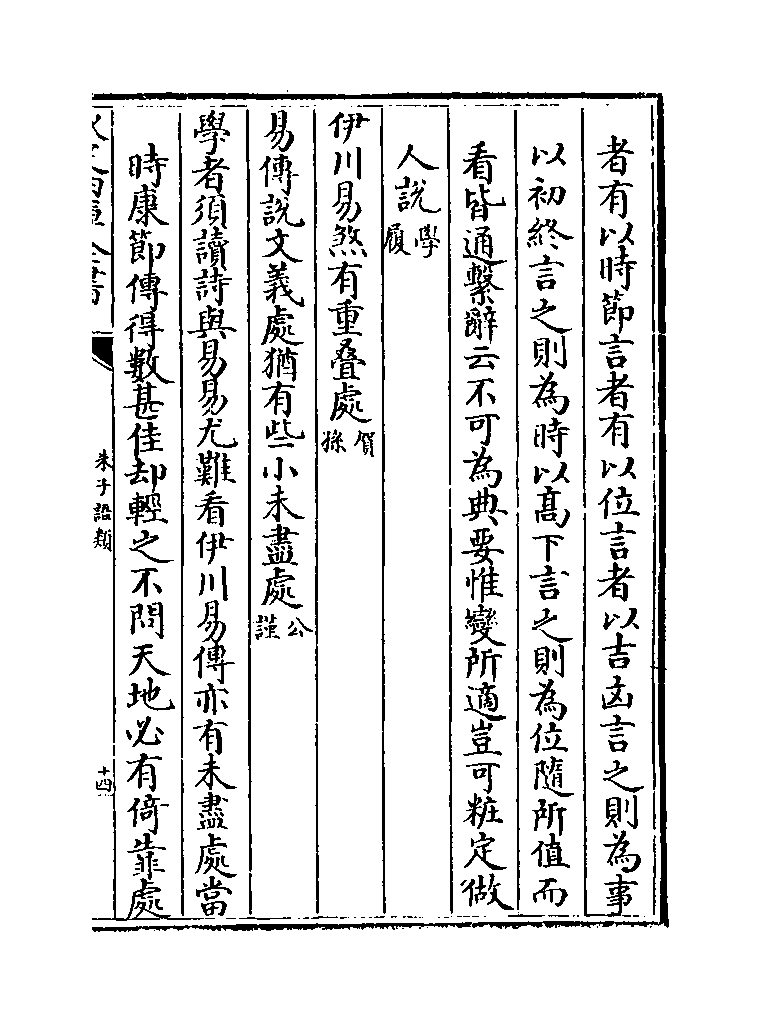 者有以時節言者有以位言者以吉凶言之則為事
以初終言之則為時以高下言之則為位隨所值而
看皆通繫辭云不可為典要惟變所適豈可粧定做
人說學履
伊川易煞有重疊處賀孫
易傳說文義處猶有些小未盡處公謹
學者須讀詩與易易尤難看伊川易傳亦有未盡處當
時康節傳得數甚佳却輕之不問天地必有倚靠處
欽定四庫全書
朱子語類
十四